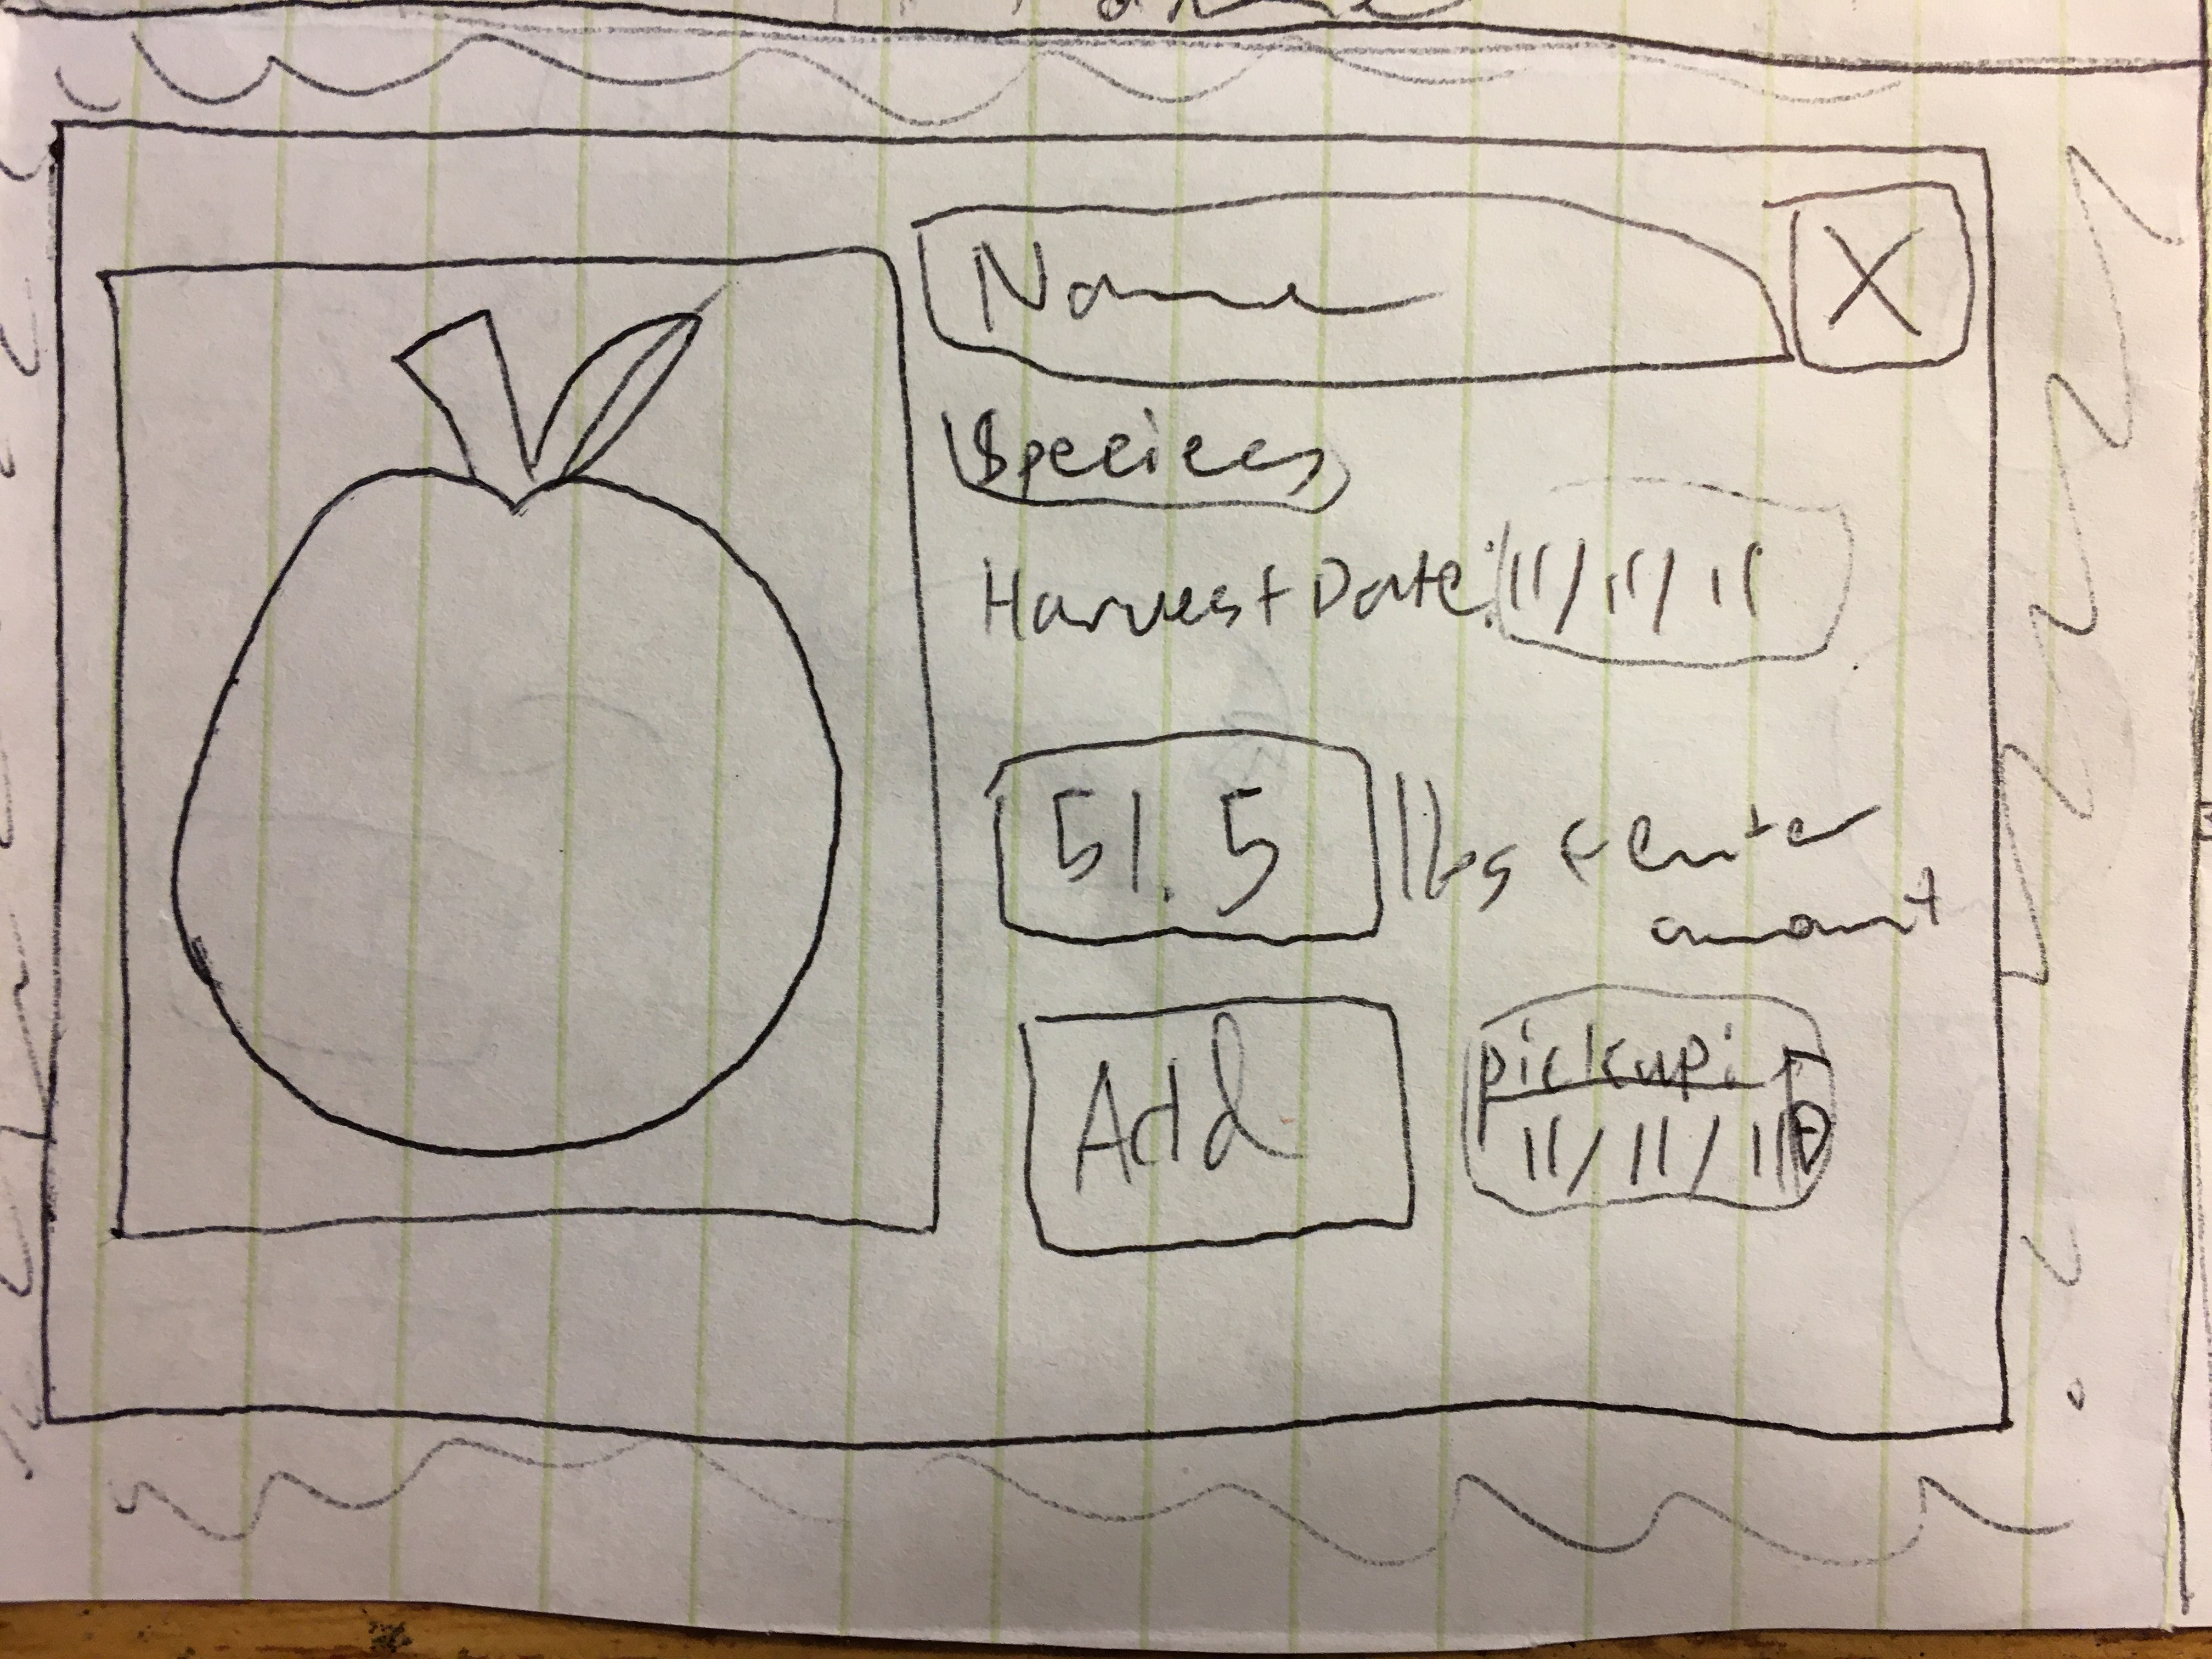 Name X
Species
Harvest Date: 11/11/11
51.5 lbs ← enter
amount
Add
pickup:
11/11/11